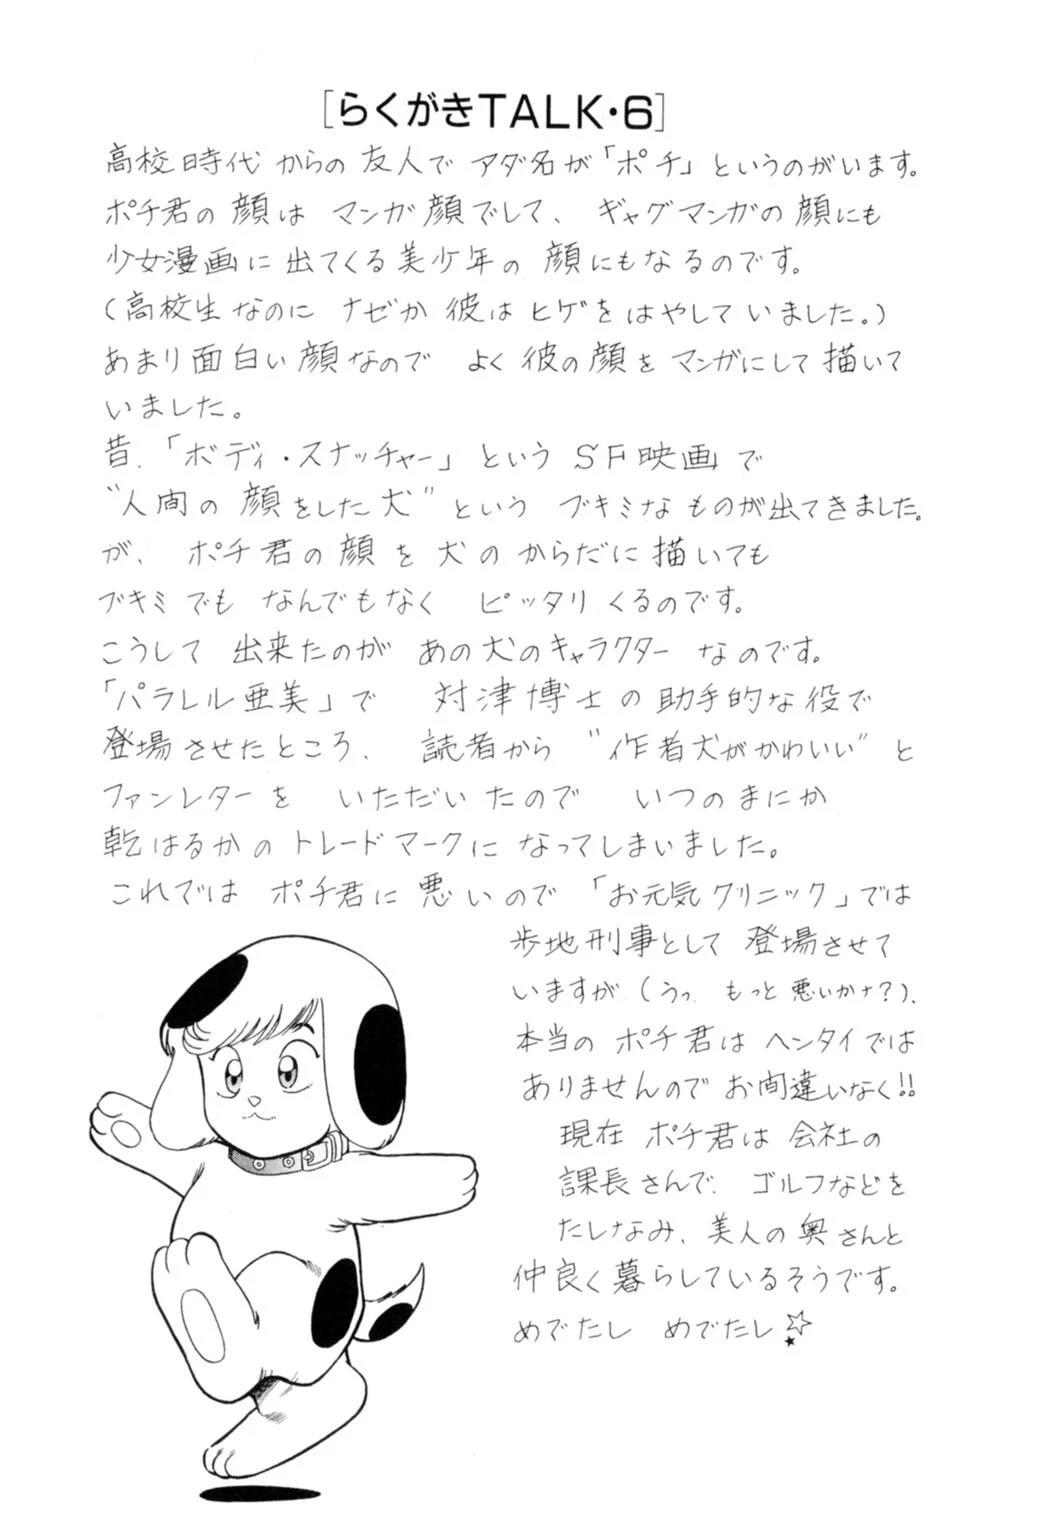 [らくがきTALK・6]
高校時代からの友人でアダ名が「ポチ」というのがいます。
ポチ君の顔はマンガ顔でして、ギャグマンガの顔にも
少女漫画に出てくる美少年の顔にもなるのです。
(高校生なのにナゼか彼はヒゲをはやしていました。)
あまり面白い顔なのでよく彼の顔をマンガにして描いて
いました。
昔、「ボディ・スナッチャー」というSF映画で
“人間の顔をした犬”というブキミなものが出てきました。
が、ポチ君の顔を犬のからだに描いても
ブキミでもなんでもなくピッタリくるのです。
こうして出来たのがあの犬のキャラクターなのです。
「パラレル亜美」で対津博士の助手的な役で
登場させたところ、読者から“作者犬がかわいい”と
ファンレターをいただいたのでいつのまにか
乾はるかのトレードマークになってしまいました。
これではポチ君に悪いので「お元気クリニック」では
歩地刑事として登場させて
いますが(うっ、もっと悪いかナ?)、
本当のポチ君はヘンタイでは
ありませんのでお間違いなく!!
現在ポチ君は会社の
課長さんで、ゴルフなどを
たしなみ、美人の奥さんと
仲良く暮らしているそうです。
めでたしめでたし☆